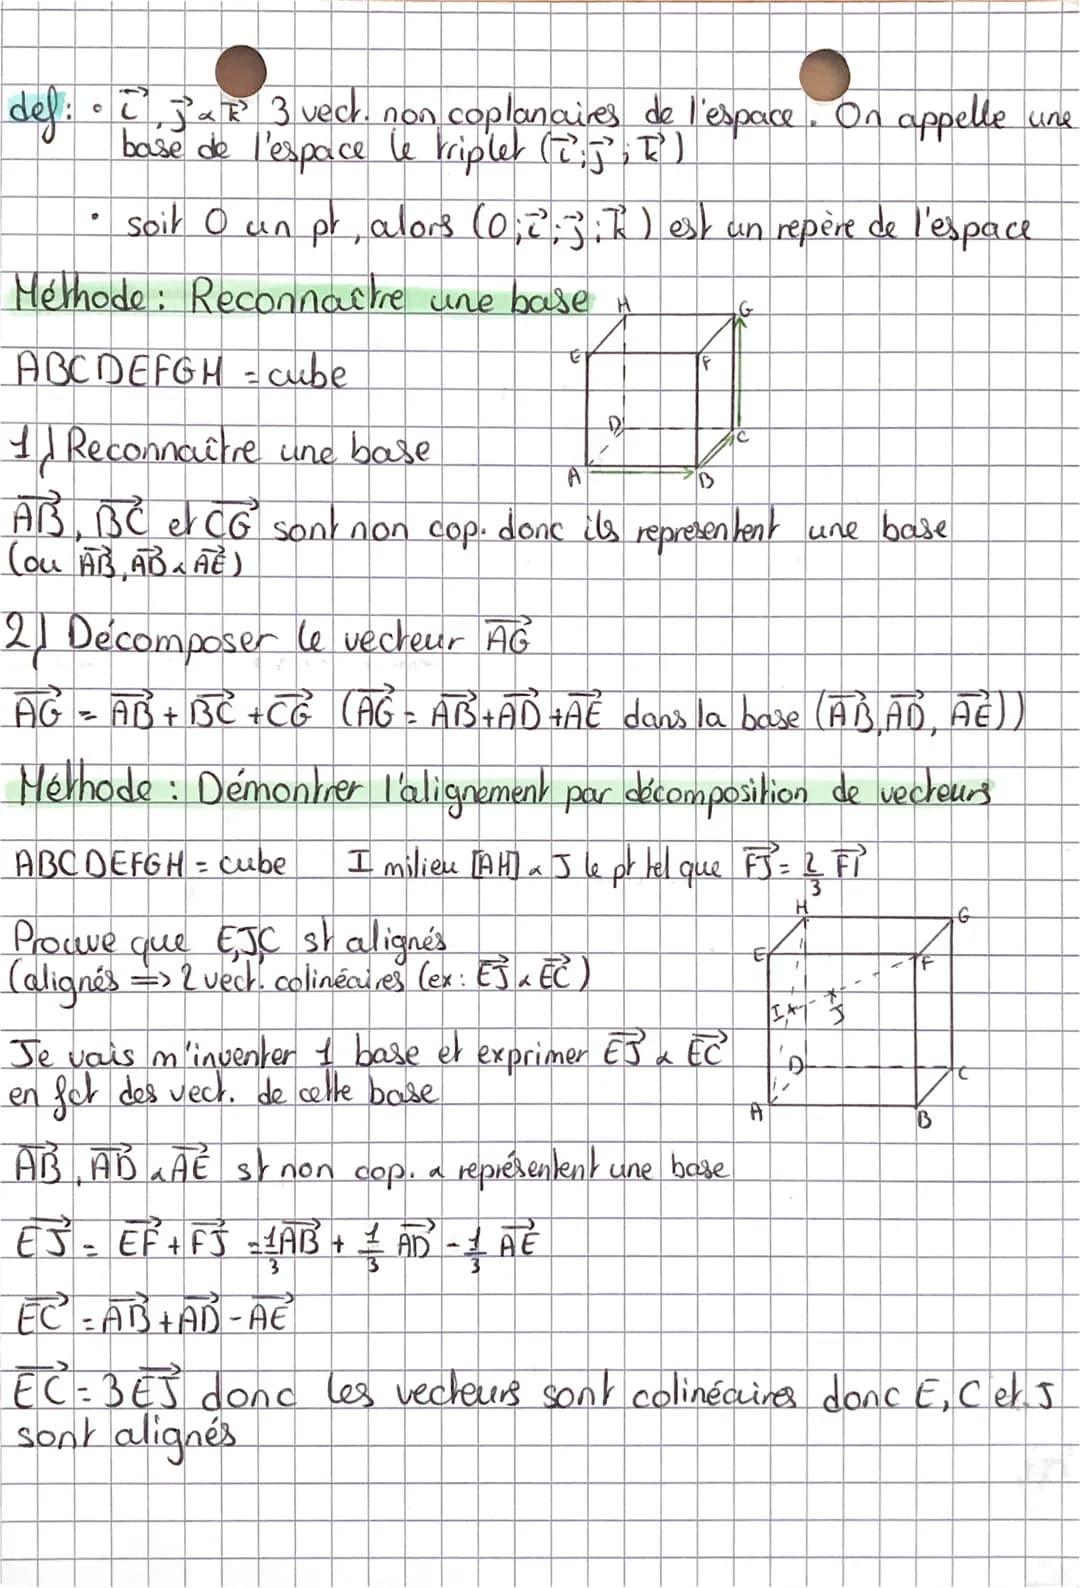 def: • i⃗, j⃗ & k⃗ 3 vect. non coplanaires de l'espace. On appelle une
base de l'espace le triplet (i⃗; j⃗; k⃗)
• soit O un pt, alors (O; i⃗; j⃗; k⃗) est un repère de l'espace
Méthode: Reconnaitre une base
H G
E F
D C
A B
ABCDEFGH = cube
1) Reconnaître une base
AB⃗, BC⃗ et CG⃗ sont non cop. donc ils representent une base
(ou AB⃗, AD⃗ & AE⃗)
2) Décomposer le vecteur AG⃗
AG⃗ = AB⃗ + BC⃗ + CG⃗ (AG⃗ = AB⃗ + AD⃗ + AE⃗ dans la base (AB⃗, AD⃗, AE⃗))
Méthode: Démontrer l'alignement par décomposition de vecteurs
ABCDEFGH = cube I milieu [AH] & J le pt tel que FJ⃗ = 2/3 FI⃗
H G
E F
I J
D C
A B
Prouve que E,J,C st alignés
(alignés => 2 vect. colinéaires (ex: EJ⃗ & EC⃗)
Je vais m'inventer 1 base et exprimer EJ⃗ & EC⃗
en fct des vect. de cette base
AB⃗, AD⃗ & AE⃗ st non cop. & représentent une base
EJ⃗ = EF⃗ + FJ⃗ = 1/3 AB⃗ + 1/3 AD⃗ - 1/3 AE⃗
EC⃗ = AB⃗ + AD⃗ - AE⃗
EC⃗ = 3EJ⃗ donc les vecteurs sont colinéaires donc E, C et J
sont alignés